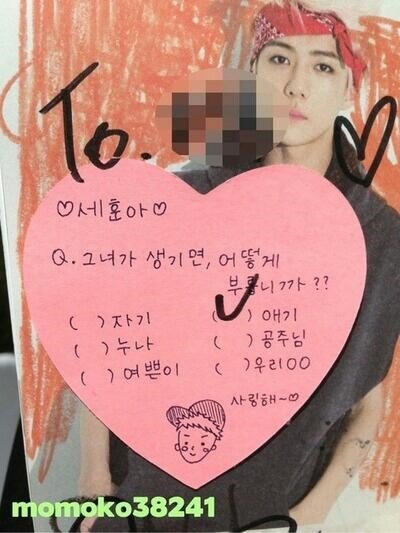 To.
♡세훈아♡
Q. 그녀가 생기면, 어떻게
부릅니까??
( )자기 ( ) 애기
( )누나 ( )공주님
( )여쁜이 ( )우리OO
사랑해~♡
momoko38241